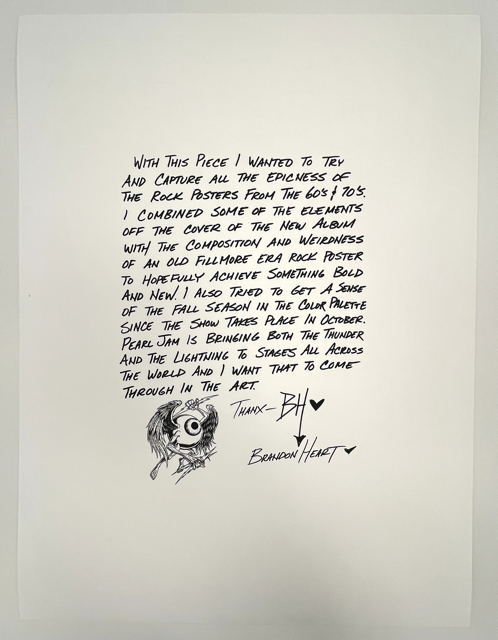 With This Piece I Wanted To Try
And Capture All The Epicness Of
The Rock Posters From The 60's & 70's.
I Combined Some Of The Elements
Off The Cover Of The New Album
With The Composition And Weirdness
Of An Old Fillmore Era Rock Poster
To Hopefully Achieve Something Bold
And New. I Also Tried To Get A Sense
Of The Fall Season In The Color Palette
Since The Show Takes Place In October.
Pearl Jam Is Bringing Both The Thunder
And The Lightning To Stages All Across
The World And I Want That To Come
Through In The Art.
Thanx- BH ♥
Brandon Heart ♥